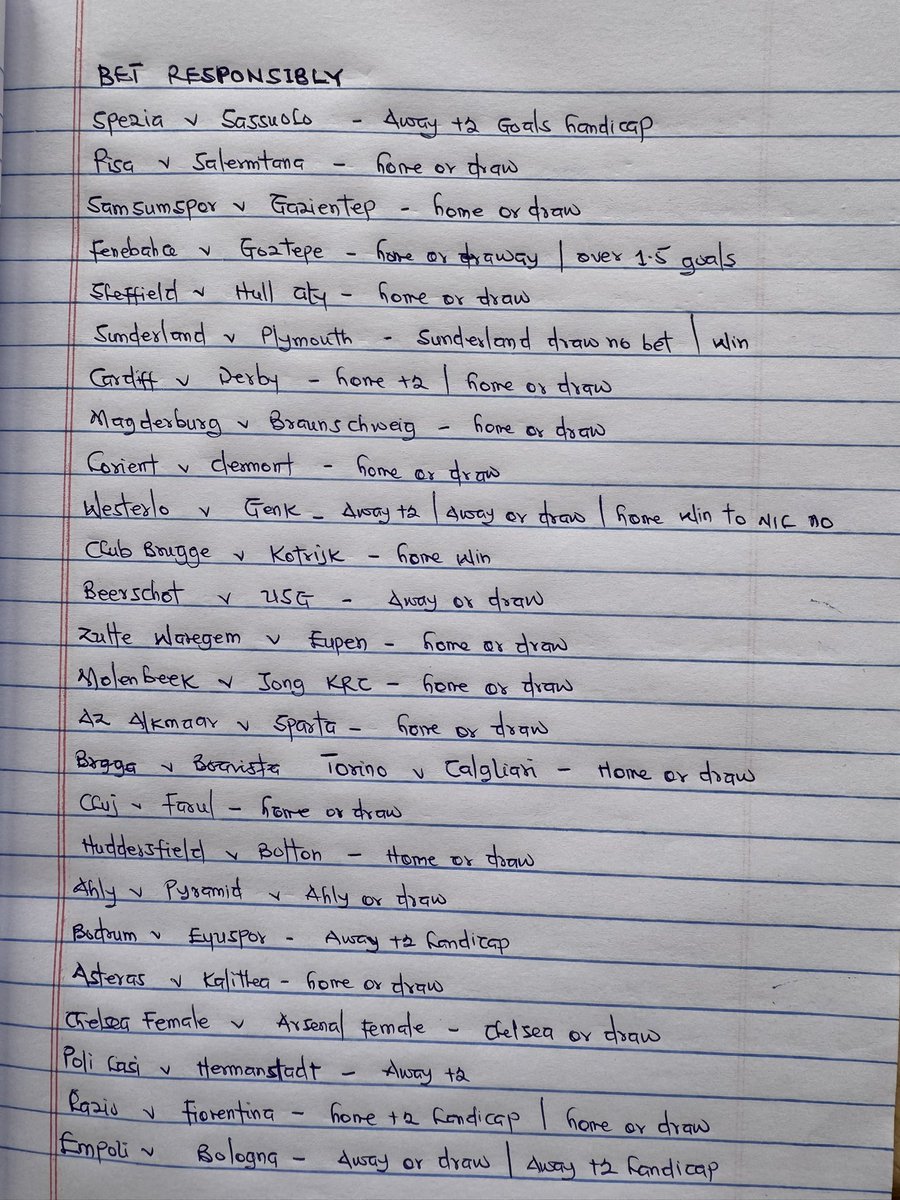 BET RESPONSIBLY
Spezia v Sassuolo - Away +2 Goals handicap
Pisa v Salerntana - home or draw
Samsumspor v Gazientep - home or draw
Fenebahce v Goztepe - home or draway | over 1.5 goals
Sheffield v Hull city - home or draw
Sunderland v Plymouth - Sunderland draw no bet | win
Cardiff v Derby - home +2 | home or draw
Magderburg v Braunschweig - home or draw
Lorient v clermont - home or draw
Westerlo v Genk - Away +2 | Away or draw | home win to NIL no
Club Brugge v Kotrijk - home win
Beerschot v USG - Away or draw
Zulte Waregem v Eupen - home or draw
Molenbeek v Jong KRC - home or draw
Az Alkmaar v Sparta - home or draw
Braga v Boavista Torino v Calgliari - Home or draw
Cluj v Farul - home or draw
Huddersfield v Bolton - Home or draw
Ahly v Pyramid v Ahly or draw
Bodrum v Eyuspor - Away +2 handicap
Asteras v Kalithea - home or draw
Chelsea Female v Arsenal Female - Chelsea or draw
Poli Iasi v Hermanstadt - Away +2
Lazio v Fiorentina - home +2 handicap | home or draw
Empoli v Bologna - Away or draw | Away +2 handicap